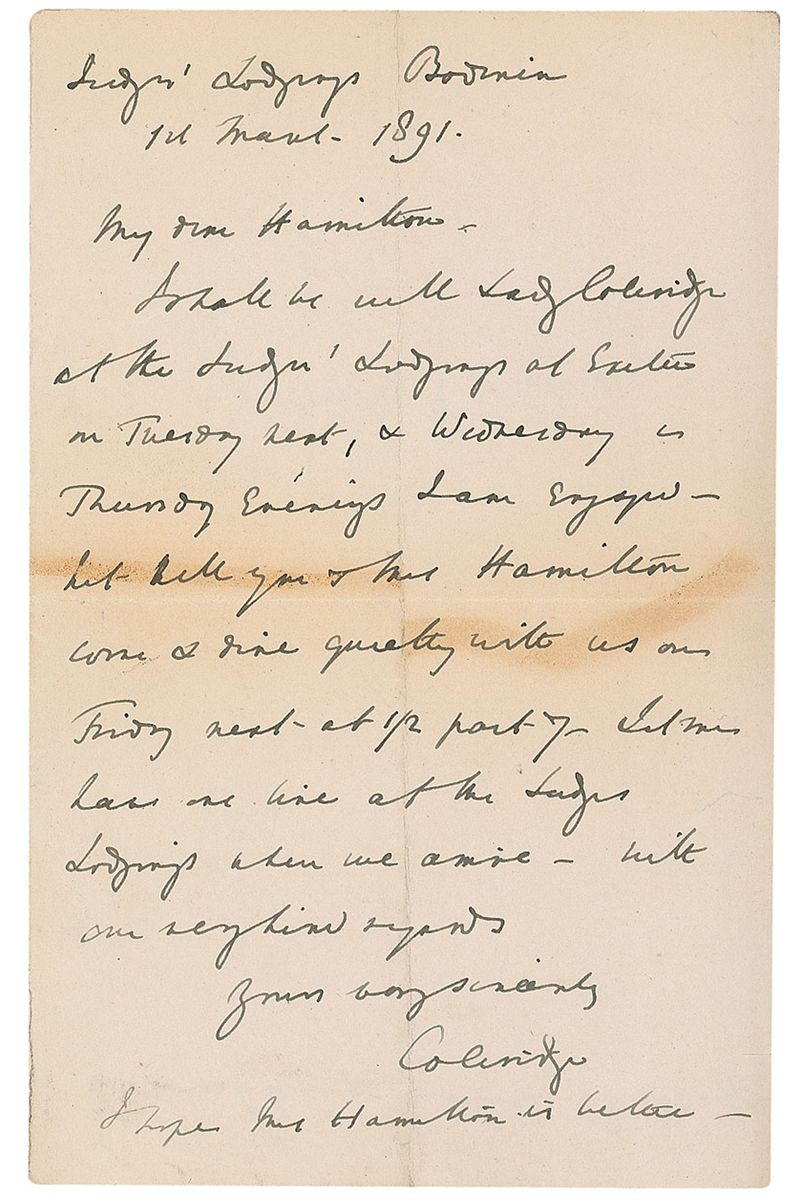 Judges' Lodgings Bodmin
1st March 1891.
My dear Hamilton -
I shall be with Lady Coleridge
at the Judges' Lodgings at Exeter
on Tuesday next, & Wednesday &
Thursday Evenings I am engaged -
but will you & Mrs Hamilton
come & dine quietly with us on
Friday next - at 1/2 past 7 - Let me
have one line at the Judges
Lodgings when we arrive - with
our very kind regards
Yours very sincerely
Coleridge
I hope Mrs Hamilton is better -